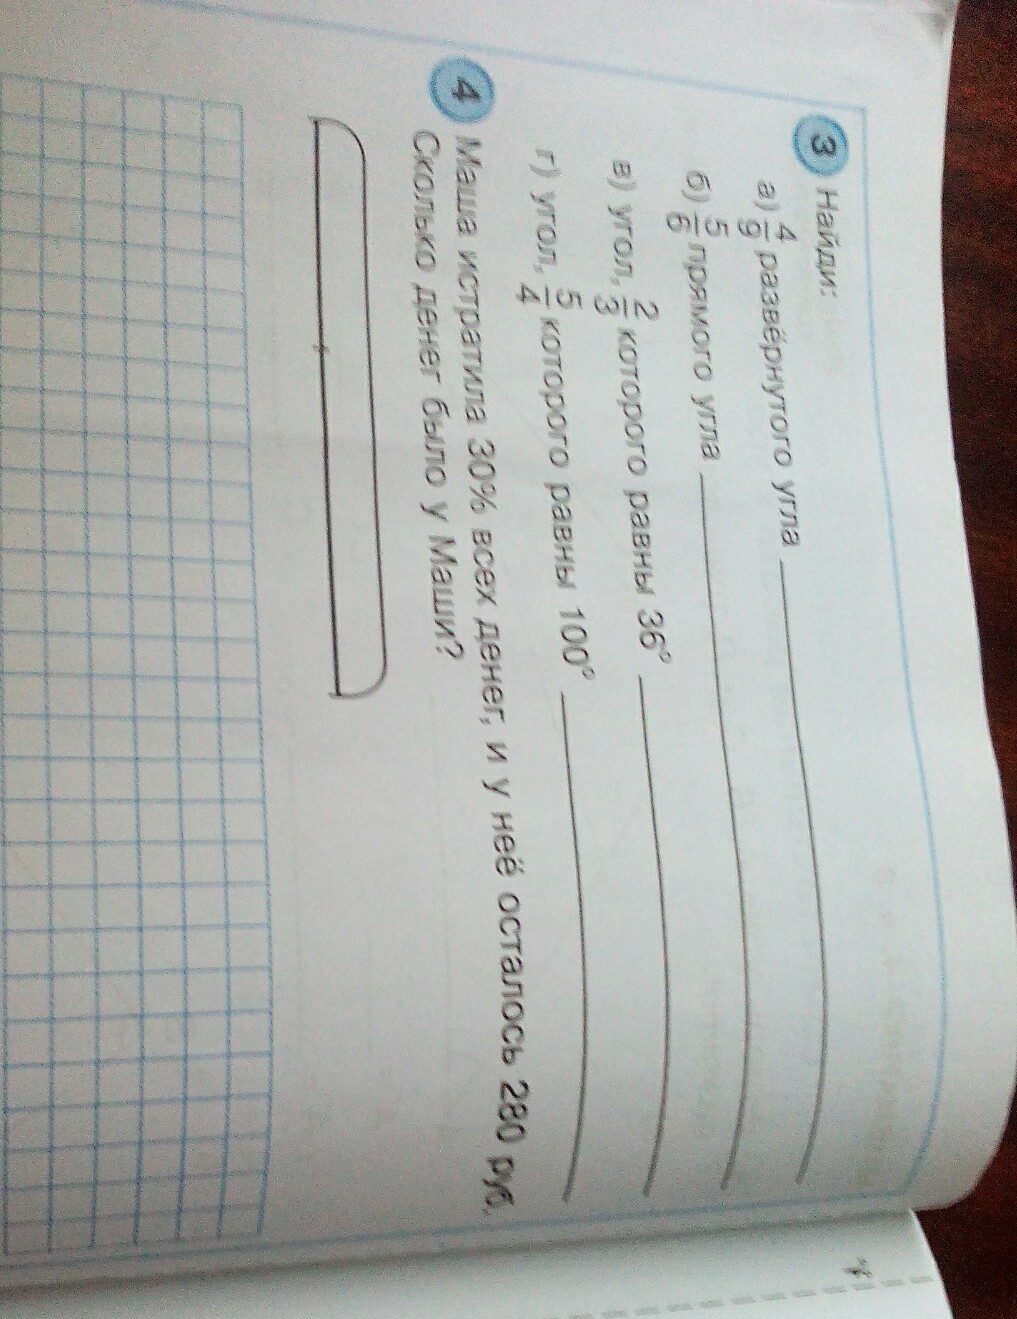 3 Найди:
а) 4/9 развёрнутого угла
б) 5/6 прямого угла
в) угол, 2/3 которого равны 36°
г) угол, 5/4 которого равны 100°
4 Маша истратила 30% всех денег, и у неё осталось 280 руб.
Сколько денег было у Маши?